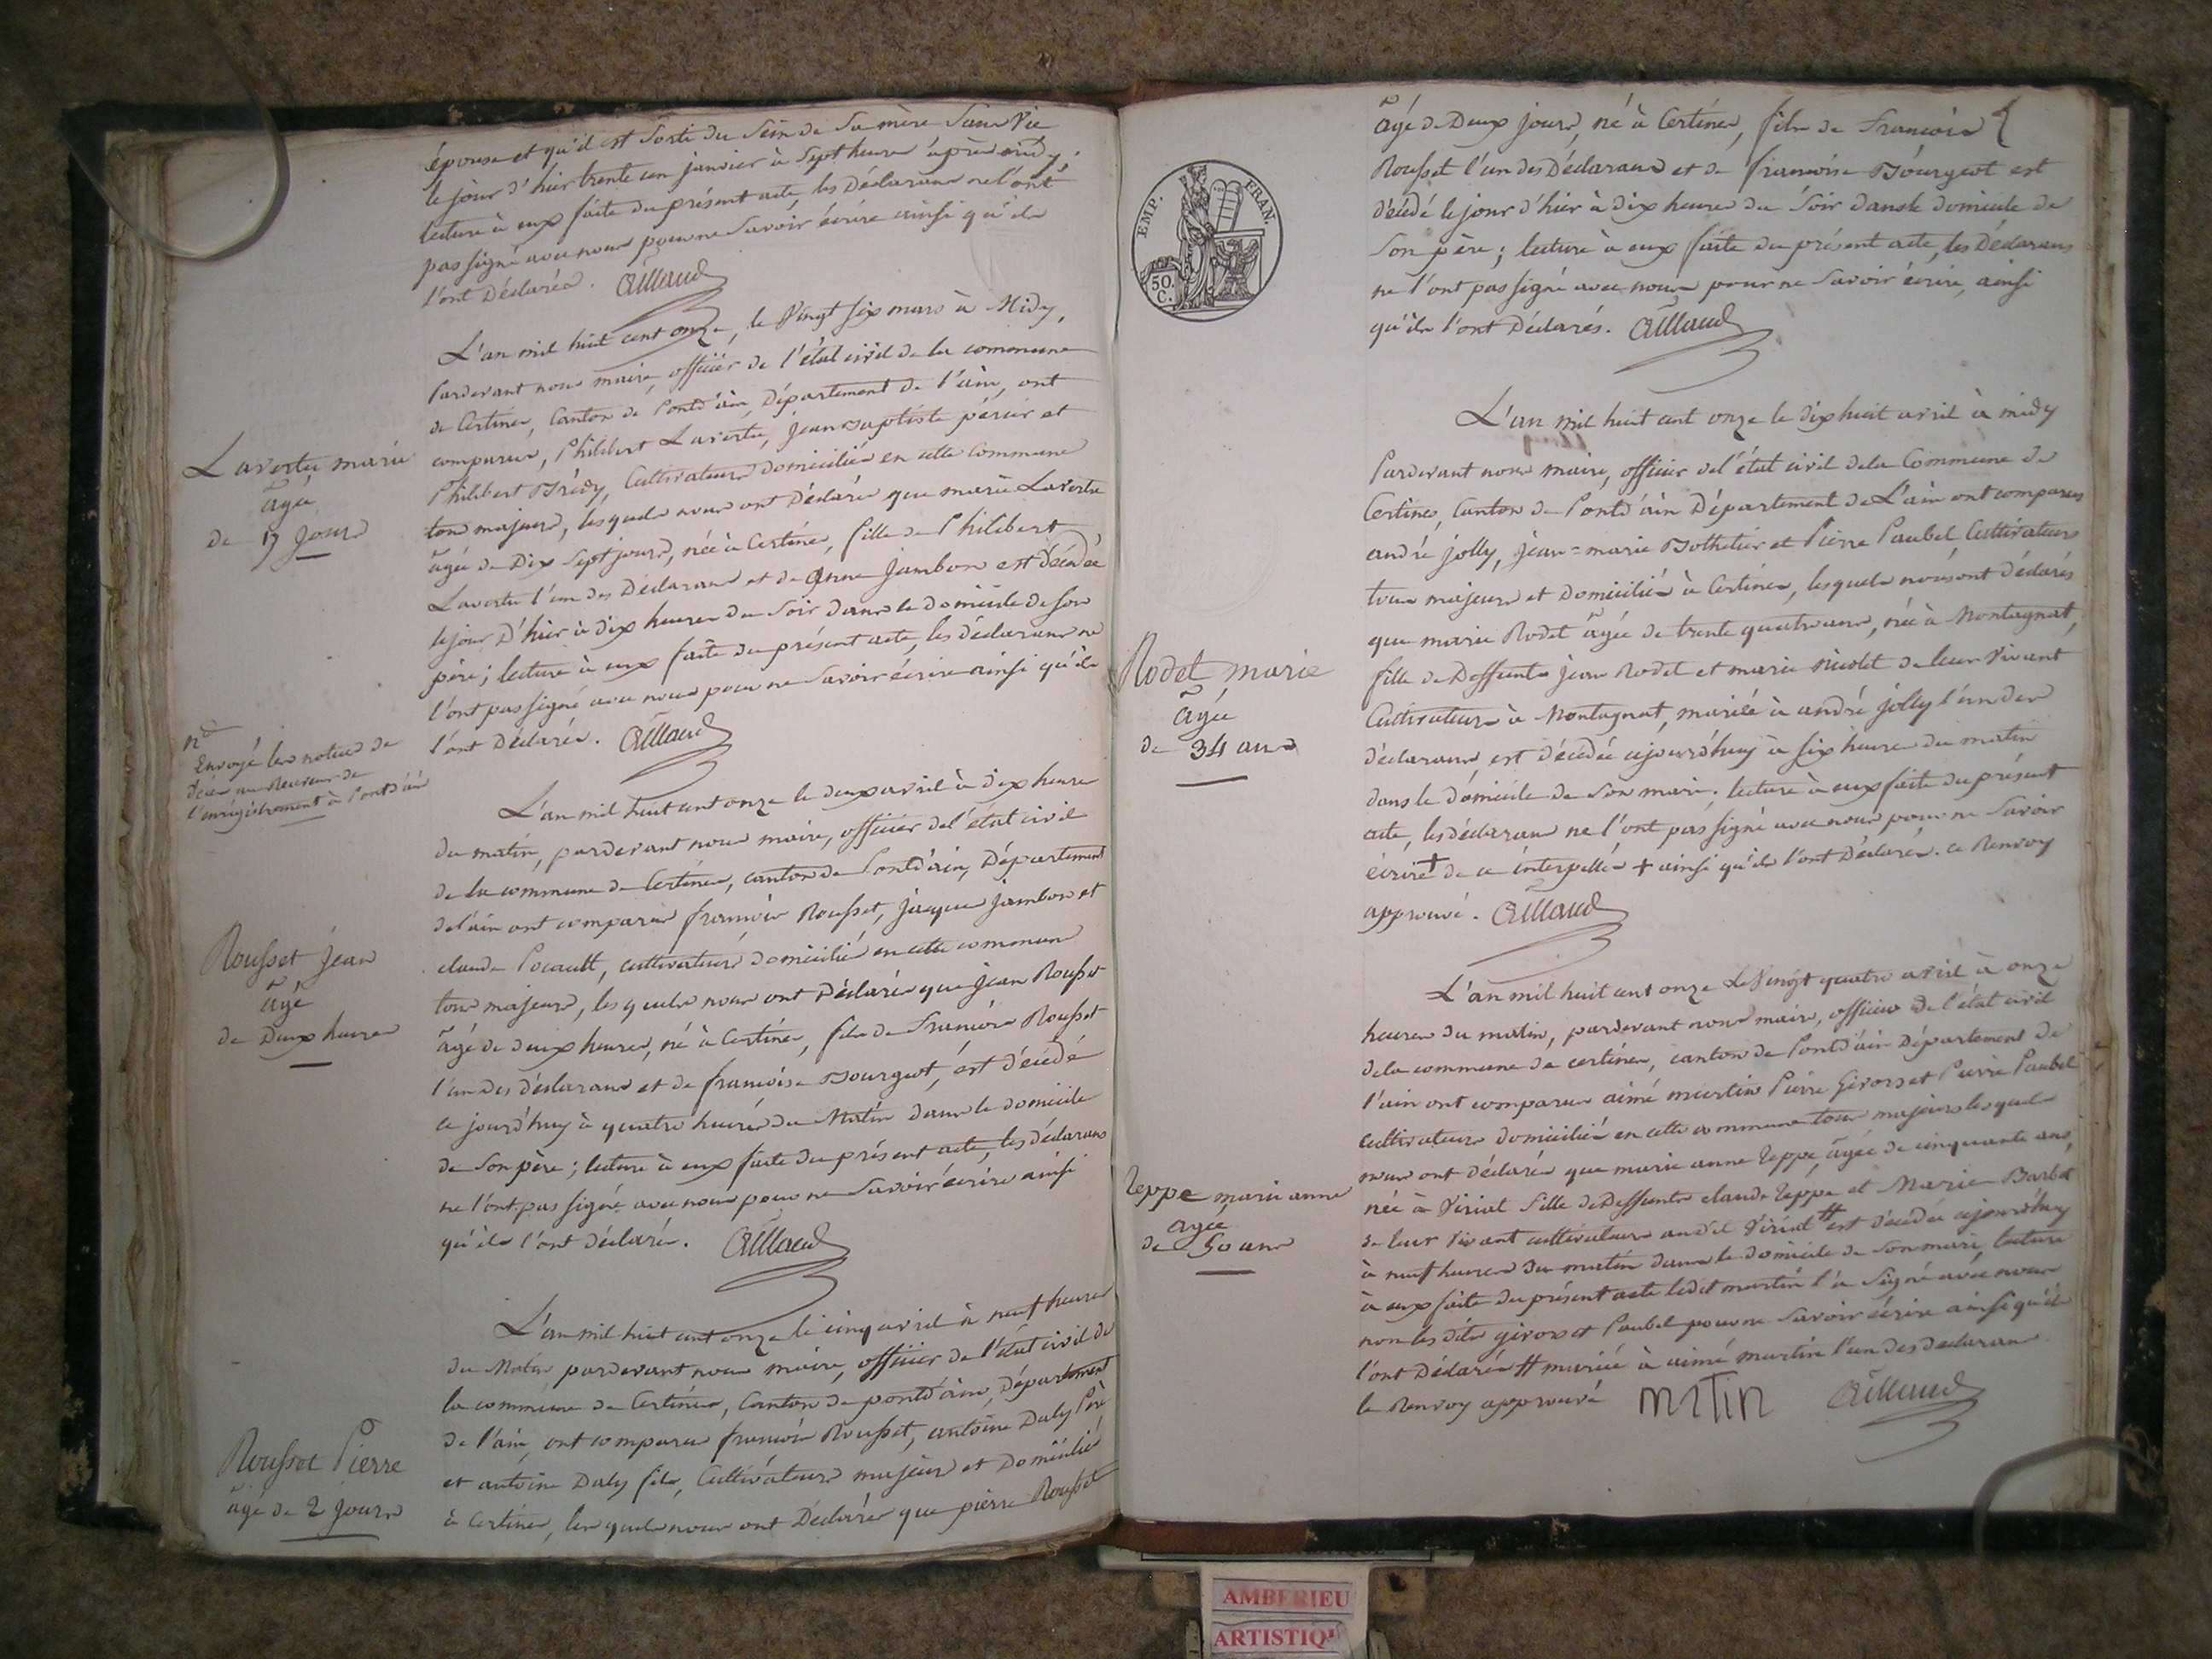 épouse et qu'il est Sorti du Sein de Sa mère Sans Vie
le jour d'hier trente un janvier à Sept heures après midy.
lecture à eux faite du présent acte, les Déclarans ne l'ont
pas signé avec nous pour ne Savoir écrire ainsi qu'ils
l'ont Déclarés.
L'an mil huit cent onze, le Vingt Six mars à Midy,
Pardevant nous maire, officier de l'état civil de la commune
de Certines, Canton de Pontd'ain, Département de l'ain, ont
comparus, Philibert Lavertu, jean Baptiste périer et
Philibert Brédy, Cultivateurs domiciliés en cette Commune
tous majeurs, lesquels nous ont Déclarés que marie Lavertu
âgée de Dix Sept jours, née à Certines, fille de Philibert
Lavertu l'un des Déclarans et de Anne Jambon est décédée
le jour D'hier à dix heures du Soir dans le domicile de Son
père; lecture à eux faite du présent acte, les déclarans ne
l'ont pas signé avec nous pour ne Savoir écrire ainsi qu'ils
l'ont Déclarés.
Lavertu marie
âgée
de 17 Jours
Envoyé les notices de
Décès au Receveur de
l'enrégistrement à Pontd'ain
L'an mil huit cent onze le deux avril à dix heures
du matin, pardevant nous maire, officier de l'état civil
de la commune de Certines, canton de Pontd'ain, Département
de l'ain ont comparus françois Rousset, jacques jambon et
claude Pocault, cultivateurs domiciliés en cette commune
tous majeurs, lesquels nous ont Déclarés que Jean Rousset
âgé de deux heures, né à Certines, fils de François Rousset
l'un des déclarans et de françoise Bourgeot, est décédé
ce jourd'huy à quatre heures du Matin dans le domicile
de Son père; lecture à eux faite du présent acte, les déclarans
ne l'ont pas signé avec nous pour ne Savoir écrire ainsi
qu'ils l'ont déclarés.
Rousset Jean
âgé
de Deux heures
L'an mil huit cent onze le cinq avril à neuf heures
du Matin pardevant nous maire, officier de l'état civil de
la commune de Certines, Canton de pontd'ain, Département
de l'ain, ont comparus françois Rousset, antoine Daly Père
et antoine Daly fils, Cultivateurs majeurs et Domiciliés
à Certines, lesquels nous ont Déclarés que pierre Rousset
Rousset Pierre
âgé de 2 jours
EMP. FRAN.
50.
C.
âgé de Deux jours, né à Certines, fils de François
Rousset l'un des Déclarans et de francoise Bourgeot est
décédé le jour d'hier à dix heures du Soir dans le domicile de
Son père; lecture à eux faite du présent acte, les Déclarans
ne l'ont pas signé avec nous pour ne Savoir écrire, ainsi
qu'ils l'ont Déclarés.
L'an mil huit cent onze le dix huit avril à midy
Pardevant nous maire, officier de l'état civil de la Commune de
Certines, Canton de Pontd'ain Département de L'ain ont comparus
andré jolly, jean=marie Bothelier et Pierre Paubel Cultivateurs
tous majeurs et Domiciliés à Certines, lesquels nous ont déclarés
que marie Rodet âgée de trente quatre ans, née à Montagnat,
fille de Deffunts jean Rodet et marie nicolet de leur Vivant
Cultivateurs à Montagnat, mariée à andré jolly l'un des
déclarans est décédée cejourd'huy à six heures du matin
dans le domicile de Son mari. lecture à eux faite du présent
acte, les déclarans ne l'ont pas signé avec nous pour ne Savoir
écrire + de ce interpellés + ainsi qu'ils l'ont Déclarés. ce Renvoy
approuvé.
Rodet marie
âgée
de 34 ans
L'an mil huit cent onze Le Vingt quatre avril à onze
heures du matin, pardevant nous maire, officier de l'état civil
de la commune de certines, canton de Pontd'ain Département de
l'ain ont comparus aimé martin Pierre Giron et Pierre Paubel
cultivateurs domiciliés en cette commune tous majeurs lesquels
nous ont déclarés que marie anne Teppe, âgée de cinquante ans,
née à Viriat fille de Deffunts claude Teppe et Marie Barbet
de leur Vivant cultivateurs audit Viriat # est décédée cejourd'huy
à neuf heures du matin dans le domicile de Son mari, lecture
à eux faite du présent acte ledit martin l'a Signé avec nous
non les dits giron et Paubel pour ne Savoir écrire ainsi qu'ils
l'ont Déclarés # mariée à aimé martin l'un des déclarans
le Renvoy approuvé
Teppe marie anne
âgée
de 50 ans
AMBERIEU
ARTISTIQU